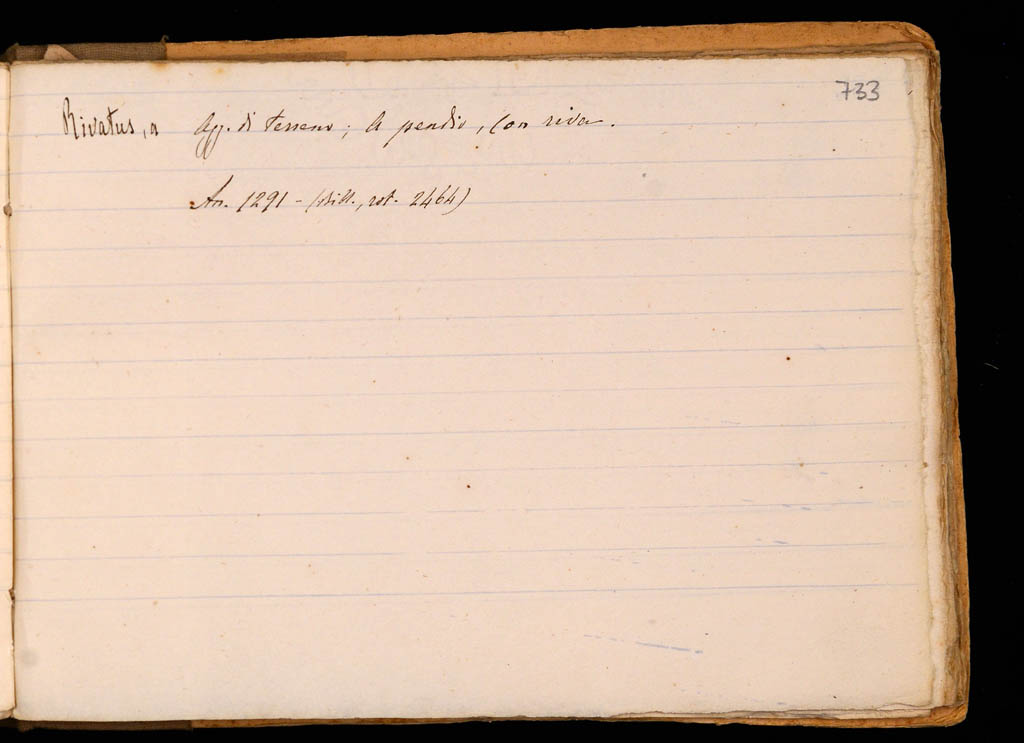 733
Rivatus, a Agg. di terreno; A pendio, con riva.
An. 1291 - (Bibl., rot. 2464)